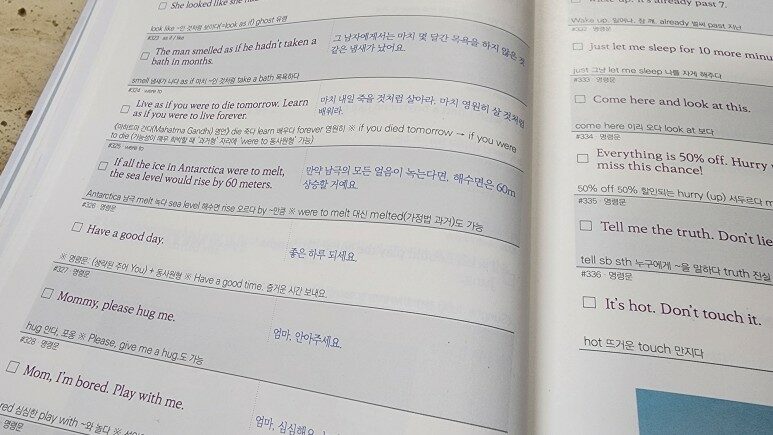 She looked like she ha
look like ~인 것처럼 보이다(=look as if) ghost 유령
#323 · as if / like
The man smelled as if he hadn't taken a
bath in months.
그 남자에게서는 마치 몇 달간 목욕을 하지 않은 것
같은 냄새가 났어요.
smell 냄새가 나다 as if 마치 ~인 것처럼 take a bath 목욕하다
#324 · were to
Live as if you were to die tomorrow. Learn
as if you were to live forever.
마치 내일 죽을 것처럼 살아라. 마치 영원히 살 것처럼
배워라.
(마하트마 간디(Mahatma Gandhi) 명언) die 죽다 learn 배우다 forever 영원히 ※ if you died tomorrow → if you were
to die (가능성이 매우 희박할 때 '과거형' 자리에 'were to 동사원형' 가능)
#325 · were to
If all the ice in Antarctica were to melt,
the sea level would rise by 60 meters.
만약 남극의 모든 얼음이 녹는다면, 해수면은 60m
상승할 거예요.
Antarctica 남극 melt 녹다 sea level 해수면 rise 오르다 by ~만큼 ※ were to melt 대신 melted(가정법 과거)도 가능
#326 · 명령문
Have a good day.
좋은 하루 되세요.
※ 명령문: (생략된 주어 You) + 동사원형 ※ Have a good time. 즐거운 시간 보내요.
#327 · 명령문
Mommy, please hug me.
엄마, 안아주세요.
hug 안다, 포옹 ※ Please, give me a hug.도 가능
#328 · 명령문
Mom, I'm bored. Play with me.
엄마, 심심해요.
red 심심한 play with ~와 놀다 ※
명령문
It's already past 7.
Wake up. 일어나, 잠 깨. already 벌써 past 지난
#332 · 명령문
Just let me sleep for 10 more minu
just 그냥 let me sleep 나를 자게 해주다
#333 · 명령문
Come here and look at this.
come here 이리 오다 look at 보다
#334 · 명령문
Everything is 50% off. Hurry
miss this chance!
50% off 50% 할인되는 hurry (up) 서두르다 m
#335 · 명령문
Tell me the truth. Don't lie
tell sb sth 누구에게 ~을 말하다 truth 진실
#336 · 명령문
It's hot. Don't touch it.
hot 뜨거운 touch 만지다